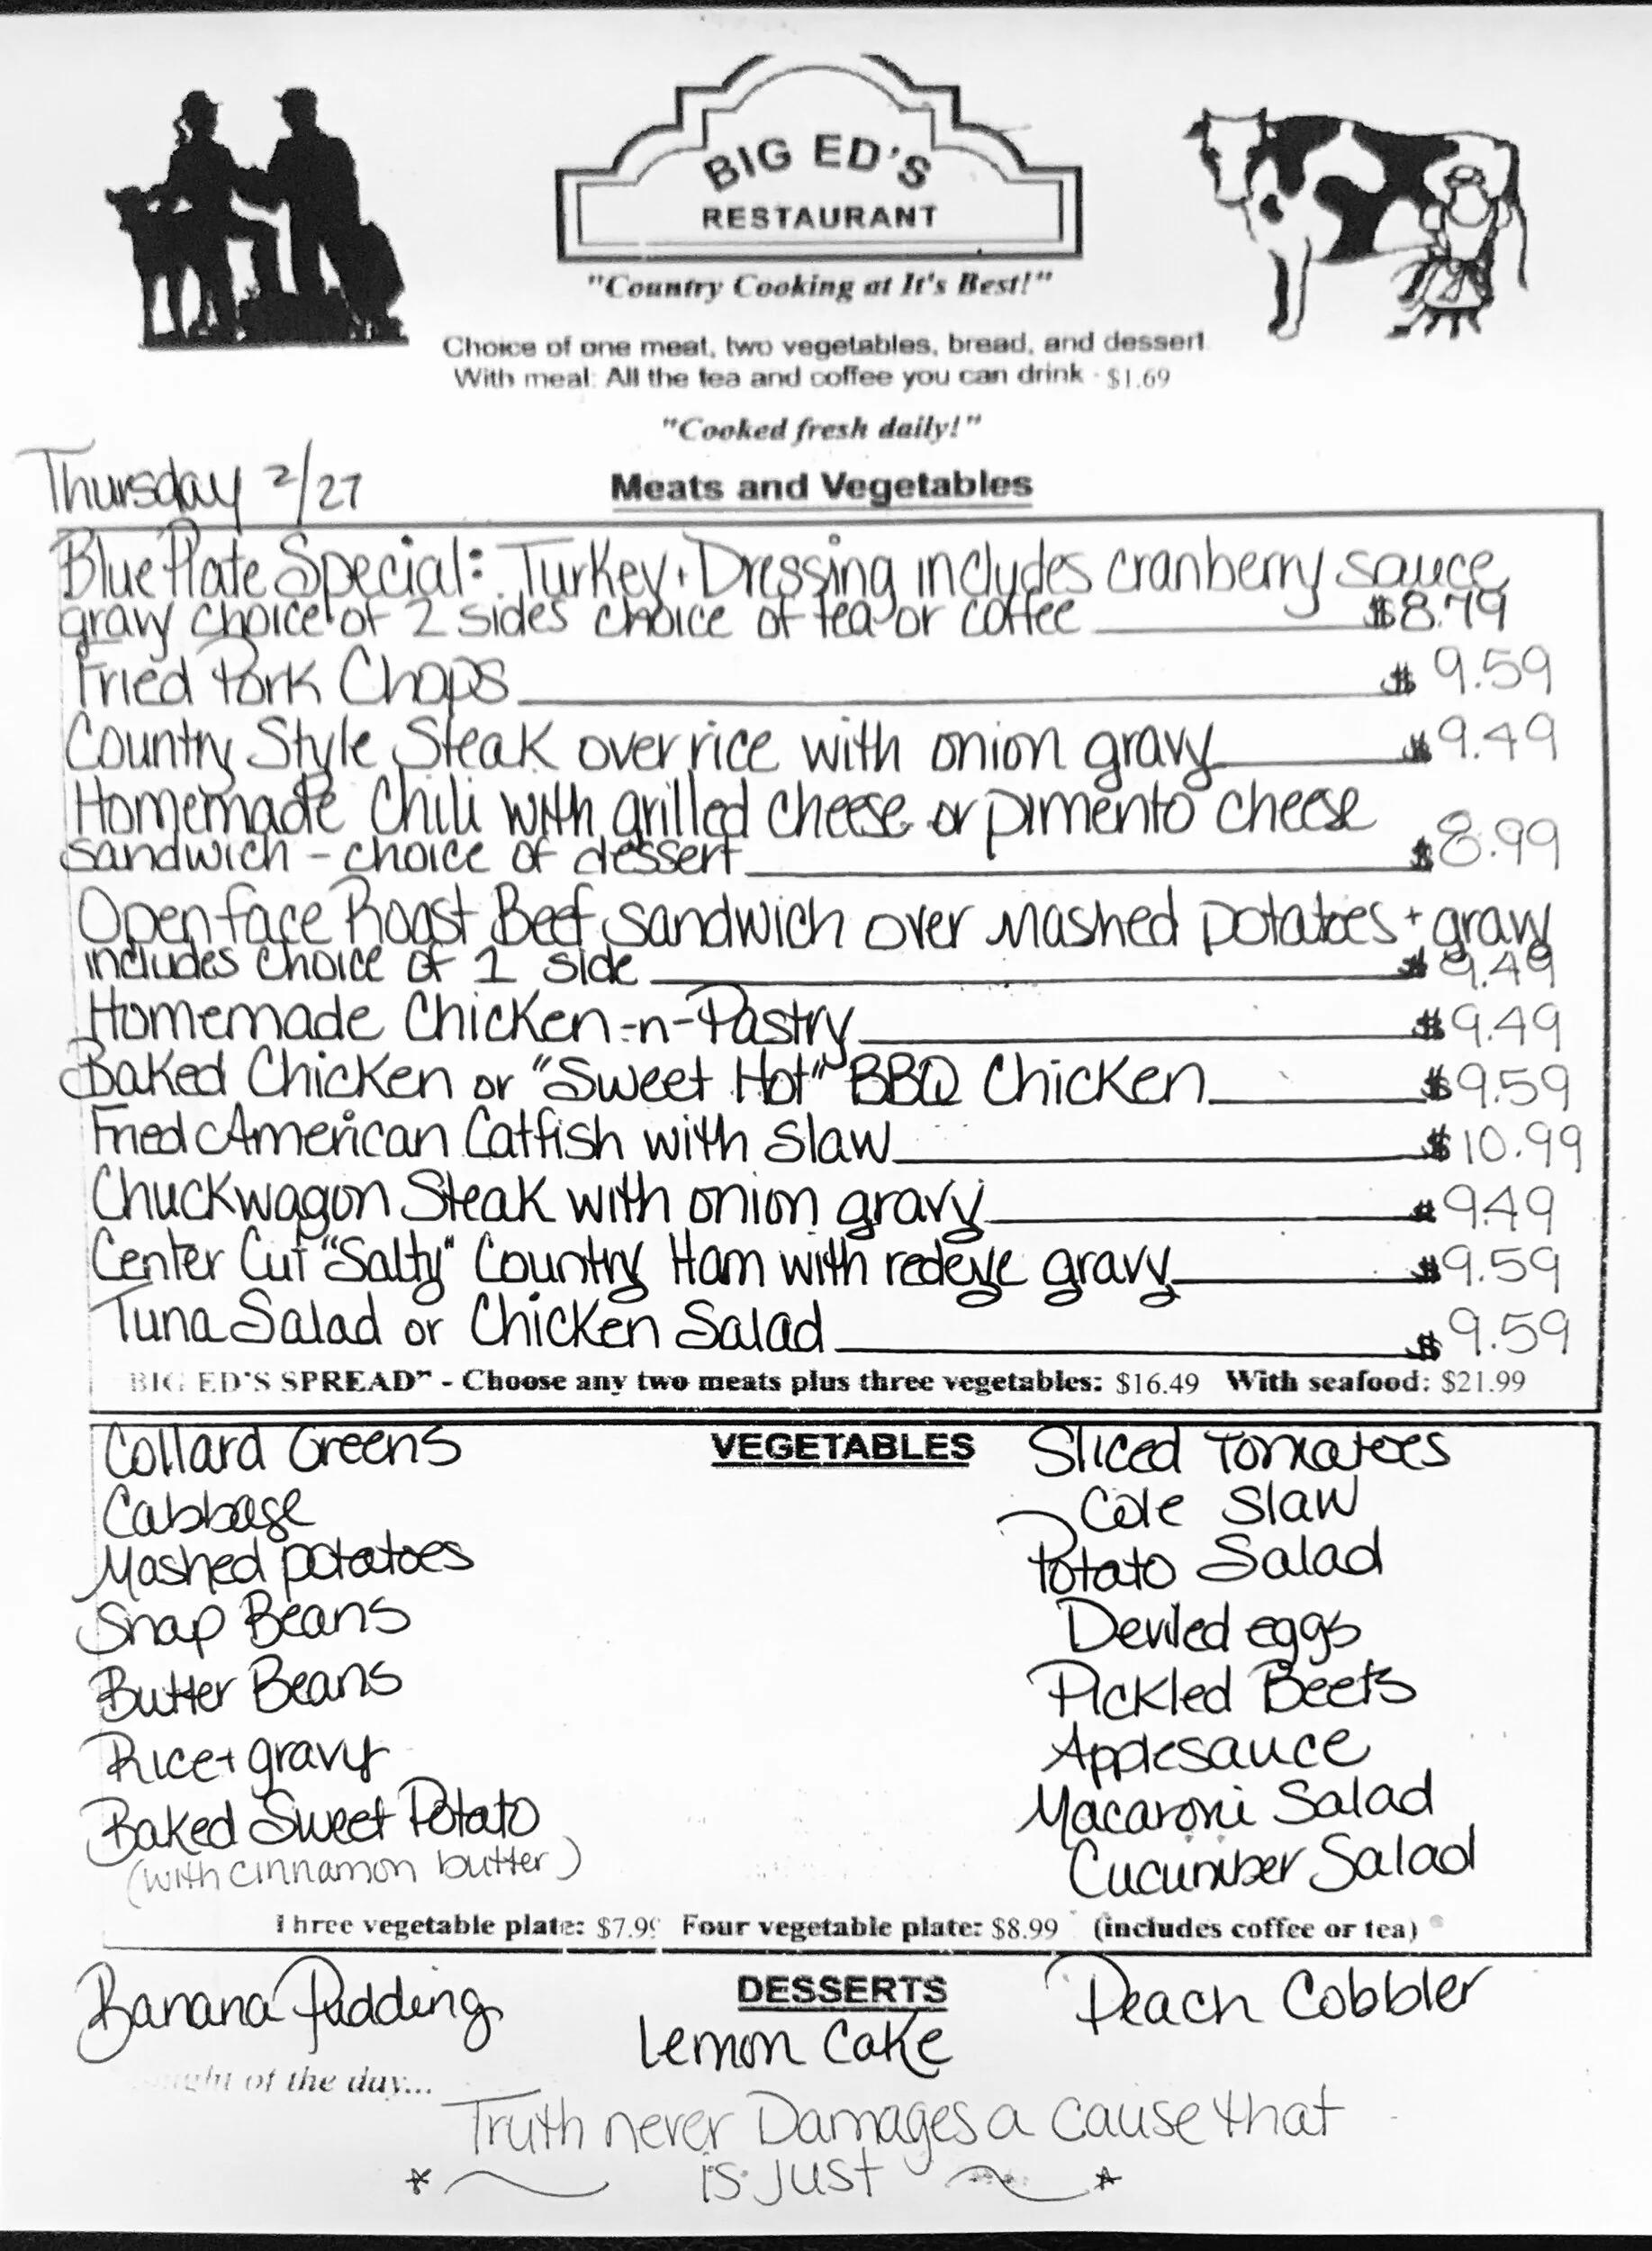 BIG ED'S
RESTAURANT
"Country Cooking at It's Best!"
Choice of one meat, two vegetables, bread, and dessert
With meal: All the tea and coffee you can drink - $1.69
"Cooked fresh daily!"
Thursday 2/27
Meats and Vegetables
Blue Plate Special: Turkey + Dressing includes cranberry sauce
gravy choice of 2 sides choice of tea or coffee $8.79
Fried Pork Chops $ 9.59
Country Style Steak over rice with onion gravy $9.49
Homemade Chili with grilled cheese or pimento cheese
sandwich - choice of dessert $8.99
Open face Roast Beef sandwich over mashed potatoes + gravy
includes choice of 1 side $9.49
Homemade Chicken-n-Pastry $9.49
Baked Chicken or "Sweet Hot" BBQ Chicken $9.59
Fried American Catfish with slaw $10.99
Chuckwagon Steak with onion gravy $9.49
Center Cut "Salty" Country Ham with redeye gravy $9.59
Tuna Salad or Chicken Salad $9.59
BIG ED'S SPREAD" - Choose any two meats plus three vegetables: $16.49 With seafood: $21.99
VEGETABLES
Collard Greens Sliced Tomatoes
Cabbage Cole Slaw
Mashed potatoes Potato Salad
Snap Beans Deviled eggs
Butter Beans Pickled Beets
Rice + gravy Applesauce
Baked Sweet Potato Macaroni Salad
(with cinnamon butter) Cucumber Salad
Three vegetable plate: $7.99 Four vegetable plate: $8.99 (includes coffee or tea)
DESSERTS
Banana Pudding Lemon Cake Peach Cobbler
of the day...
Truth never Damages a cause that
is just